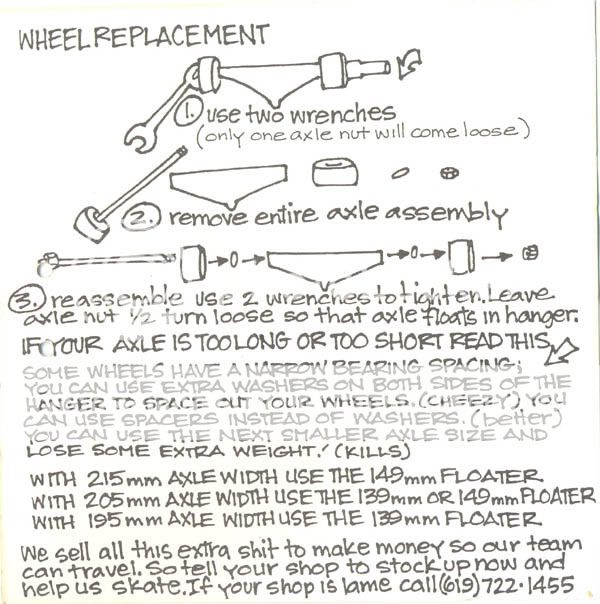 WHEEL REPLACEMENT
1. use two wrenches
(only one axle nut will come loose)
2. remove entire axle assembly
3. reassemble use 2 wrenches to tighten. Leave
axle nut 1/2 turn loose so that axle floats in hanger.
IF YOUR AXLE IS TOO LONG OR TOO SHORT READ THIS,
SOME WHEELS HAVE A NARROW BEARING SPACING;
YOU CAN USE EXTRA WASHERS ON BOTH SIDES OF THE
HANGER TO SPACE OUT YOUR WHEELS. (CHEEZY) YOU
CAN USE SPACERS INSTEAD OF WASHERS. (better)
YOU CAN USE THE NEXT SMALLER AXLE SIZE AND
LOSE SOME EXTRA WEIGHT! (KILLS)
WITH 215mm AXLE WIDTH USE THE 149mm FLOATER
WITH 205mm AXLE WIDTH USE THE 139mm OR 149mm FLOATER
WITH 195mm AXLE WIDTH USE THE 139mm FLOATER
We sell all this extra shit to make money so our team
can travel. So tell your shop to stock up now and
help us skate. If your shop is lame call (619) 722-1455